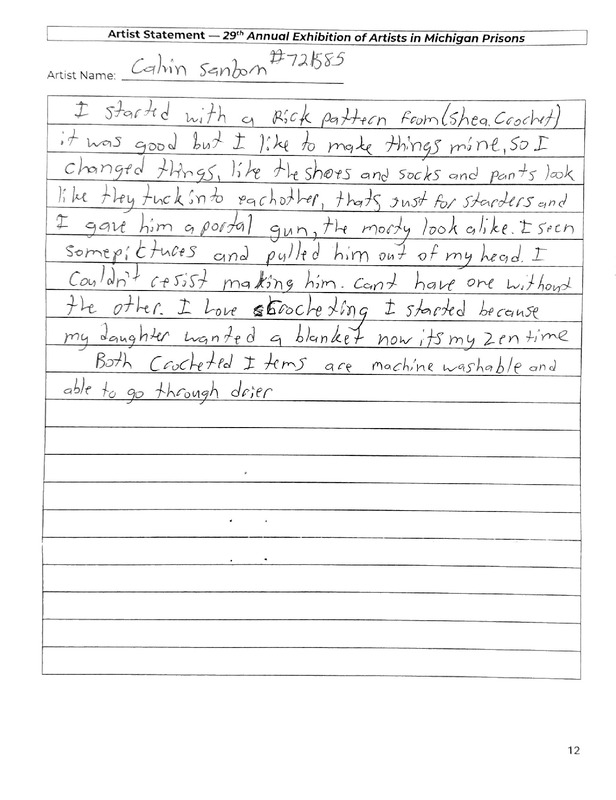 Artist Statement — 29th Annual Exhibition of Artists in Michigan Prisons
Artist Name: Calvin Sanborn #721585
I started with a Rick pattern From(Shea.Crochet)
it was good but I like to make things mine, so I
changed things, like the shoes and socks and pants look
like they tuck into eachother, thats just for starders and
I gave him a portal gun, the morty look alike. I seen
somepictures and pulled him out of my head. I
Couldn't resist making him. Cant have one without
the other. I Love Crocheting I started because
my daughter wanted a blanket now its my zen time
Both Crocheted Items are machine washable and
able to go through drier
12